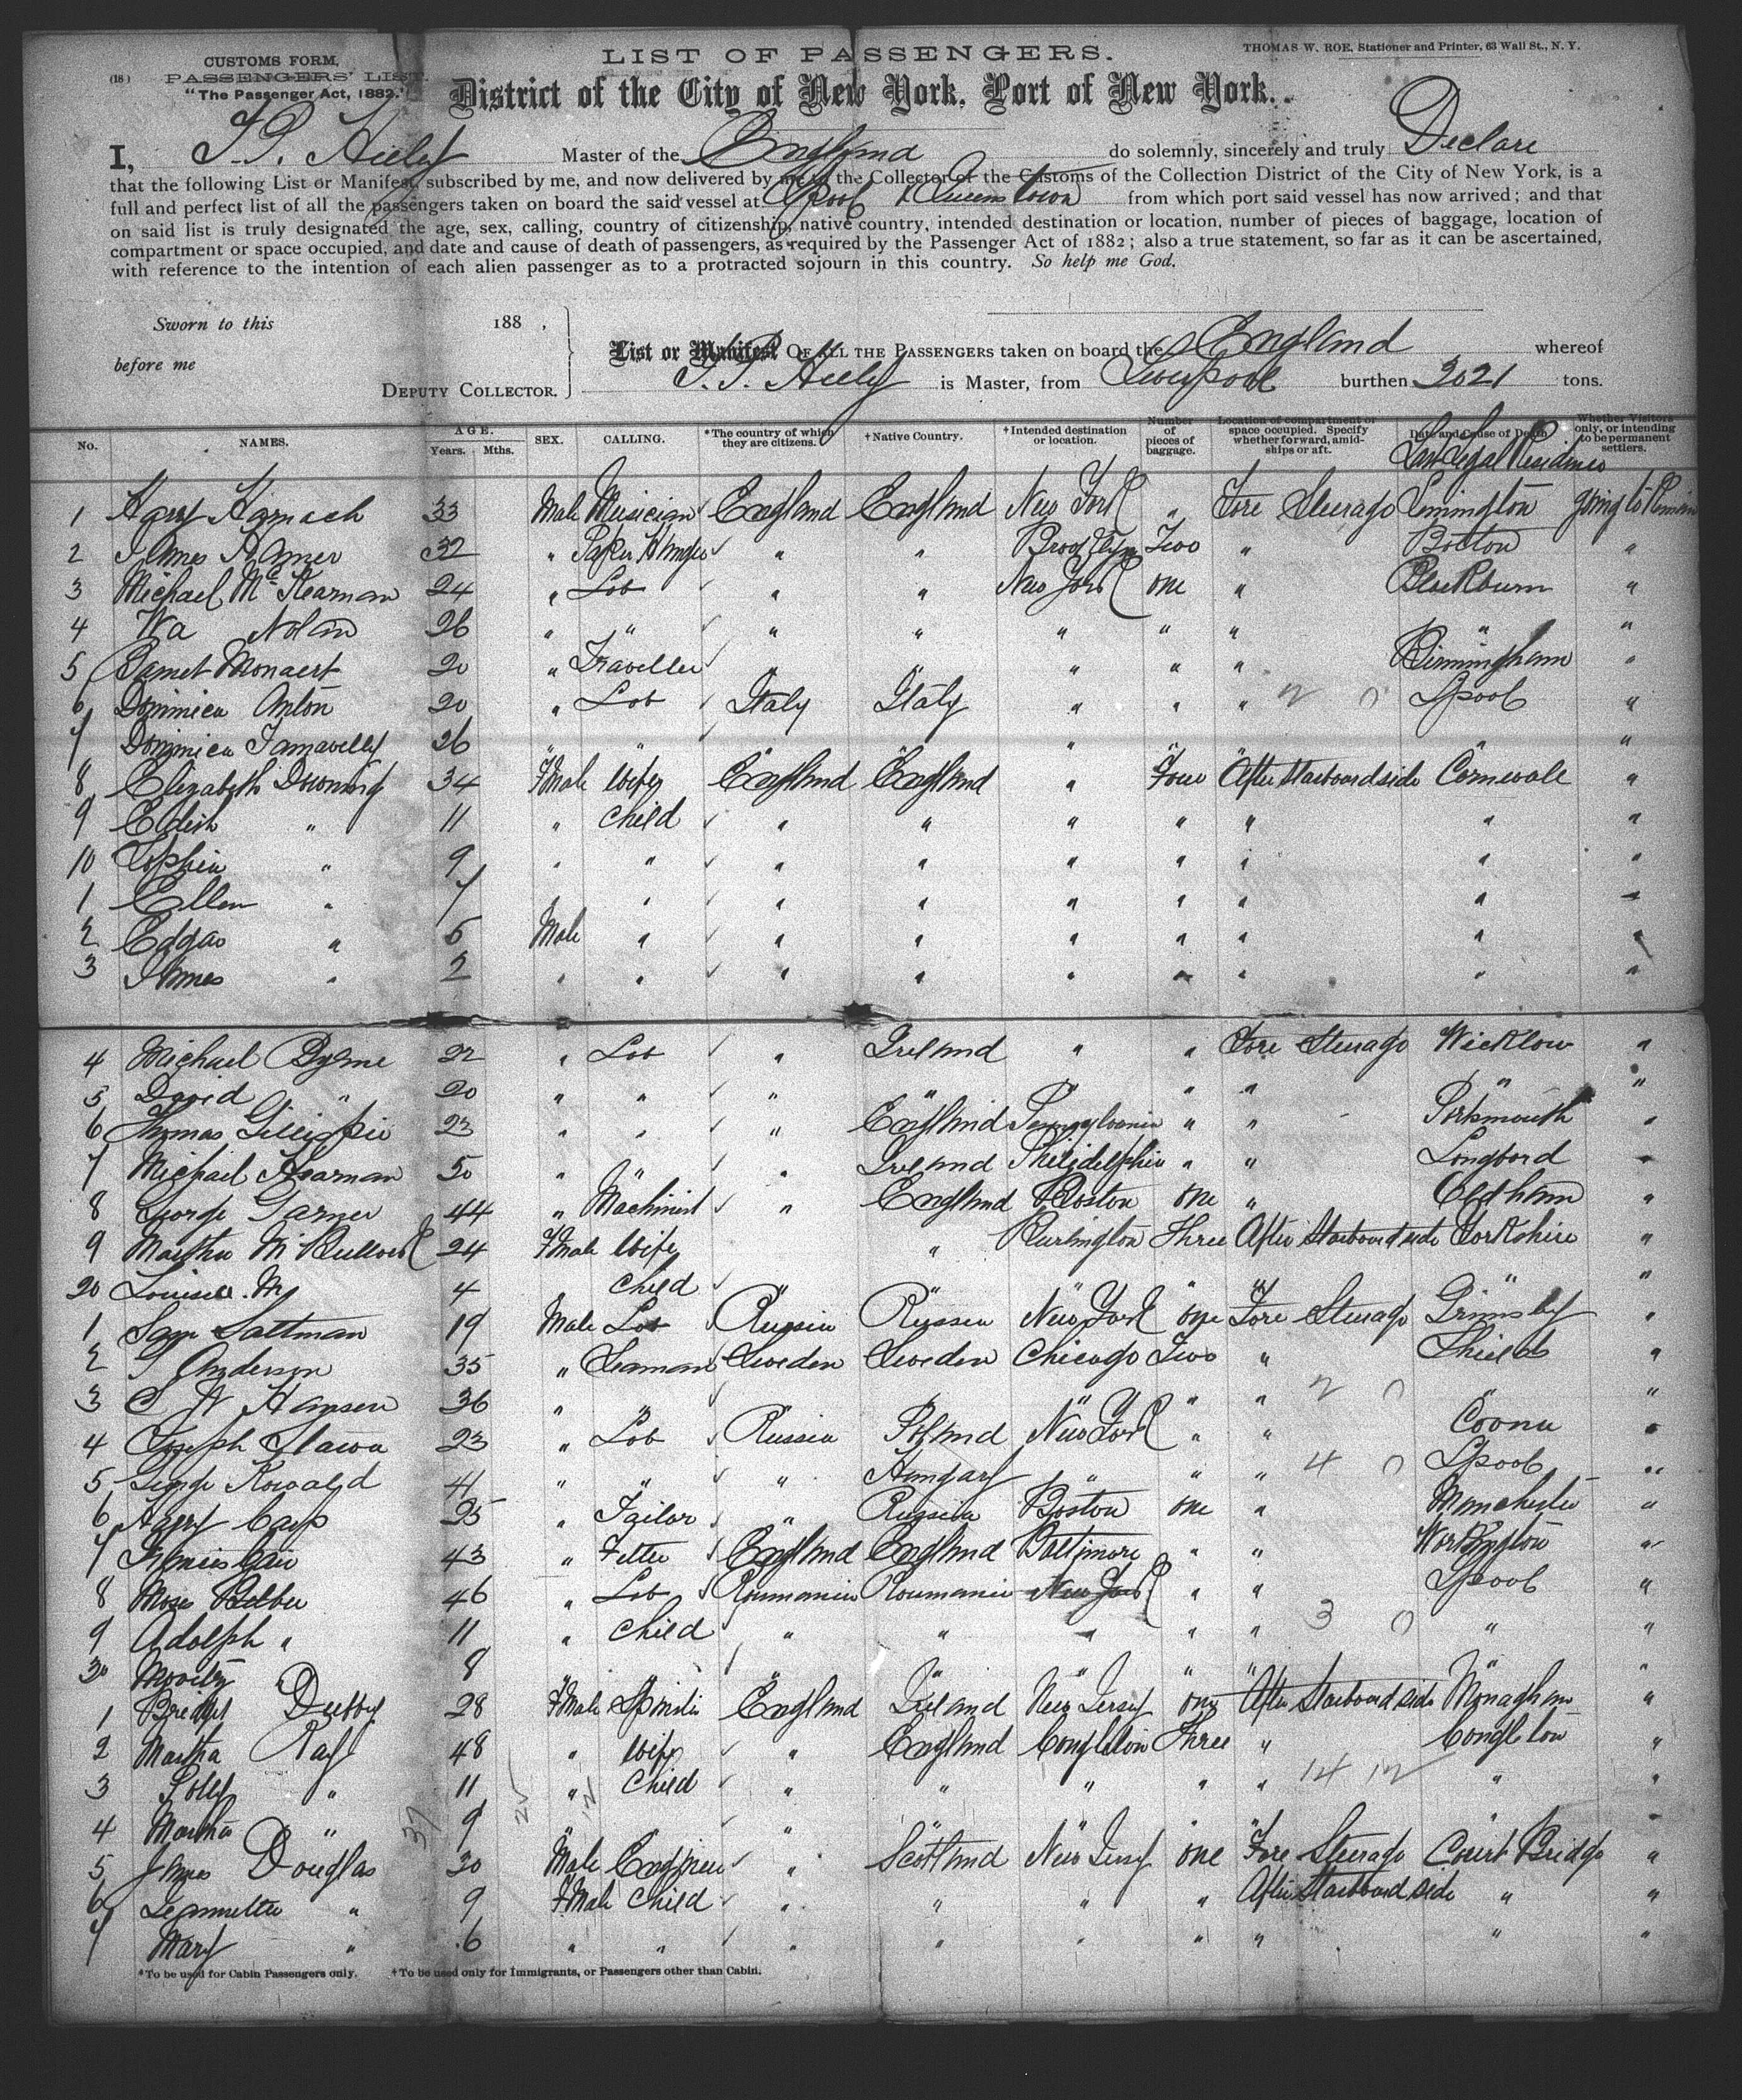 LIST OF PASSENGERS.
THOMAS W. ROE, Stationer and Printer, 63 Wall St., N. Y.
CUSTOMS FORM,
(18) PASSENGERS' LIST.
"The Passenger Act, 1882."
District of the City of New York, Port of New York.
I, Master of the England do solemnly, sincerely and truly Declare
that the following List or Manifest, subscribed by me, and now delivered by me to the Collector of the Customs of the Collection District of the City of New York, is a
full and perfect list of all the passengers taken on board the said vessel at Lpool & Queenstown from which port said vessel has now arrived; and that
on said list is truly designated the age, sex, calling, country of citizenship, native country, intended destination or location, number of pieces of baggage, location of
compartment or space occupied, and date and cause of death of passengers, as required by the Passenger Act of 1882; also a true statement, so far as it can be ascertained,
with reference to the intention of each alien passenger as to a protracted sojourn in this country. So help me God.
Sworn to this 188 ,
before me
DEPUTY COLLECTOR.
List or Manifest OF ALL THE PASSENGERS taken on board the England whereof
is Master, from Liverpool burthen 3021 tons.
No. NAMES. AGE. Years. Mths. SEX. CALLING. *The country of which they are citizens. †Native Country. †Intended destination or location. Number of pieces of baggage. Location of compartment or space occupied. Specify whether forward, amidships or aft. Date and Cause of Death Last Legal Residence Whether Visitors only, or intending to be permanent settlers.
1 Harry 33 Male Musician England England New York " Fore Steerage going to Remain
2 James 32 " " " Brooklyn Two " Boston "
3 Michael Mc Kearnan 24 " Lab " " New York one " Blackburn "
4 Nolan 26 " " " " " " " " "
5 20 " Traveller " " " " " Birmingham "
6 Anton 20 " Lab Italy Italy " " " Lpool "
7 26 " " " " " " " " "
8 Elizabeth Downing 34 FMale Wife England England " Four After Starboard side Cornwall "
9 Edith " 11 " Child " " " " " " "
10 Sophia " 9 " " " " " " " " "
1 Ellen " 7 " " " " " " " "
2 Edgar " 5 Male " " " " " " " "
3 James " 2 " " " " " " " " "
4 Michael Byrne 22 " Lab " Ireland " " Fore Steerage Wicklow "
5 David " 20 " " " " " " " "
6 Thomas Gillispie 23 " " " England Pennsylvania " " Portsmouth "
7 Michael Kearnan 50 " " " Ireland Philidelphia " " Longford "
8 George Garner 44 " Machinist " England Boston one " Oldham "
9 Martha 24 FMale Wife " Burlington Three After Starboard side Yorkshire "
20 Louisa M 4 Child " " " " " "
1 Sam Saltman 19 Male Lab Russia Russia New York one Fore Steerage Grimsby "
2 Anderson 35 " Seaman Sweden Sweden Chicago Two " Shields "
3 Hansen 36 " " " " " "
4 Joseph 23 " Lab Russia Poland New York " " "
5 George Kowald 41 " " " Hungary " " " Lpool "
6 Harry 25 " Tailor " Russia Boston one " Manchester "
7 43 " Fitter England England Baltimore " " Workington "
8 46 " Lab Roumania Roumania New York " " Lpool "
9 Adolph " 11 " Child " " " " " " "
30 8 " " " " " "
1 Bridget Duffy 28 FMale Spinster England Ireland New Jersey one After Starboard side Monaghan "
2 Martha Ray 48 " Wife " England Congleton Three " Congleton "
3 Polly " 11 " Child " " " " " " "
4 Martha " 9 " " " "
5 James Douglas 30 Male Engineer " Scotland New Jersey one Fore Steerage Bridge "
6 Jeannette " 9 FMale Child " " " " After Starboard side " "
7 Mary " 6 " " " " " " " " "
*To be used for Cabin Passengers only. †To be used only for Immigrants, or Passengers other than Cabin.